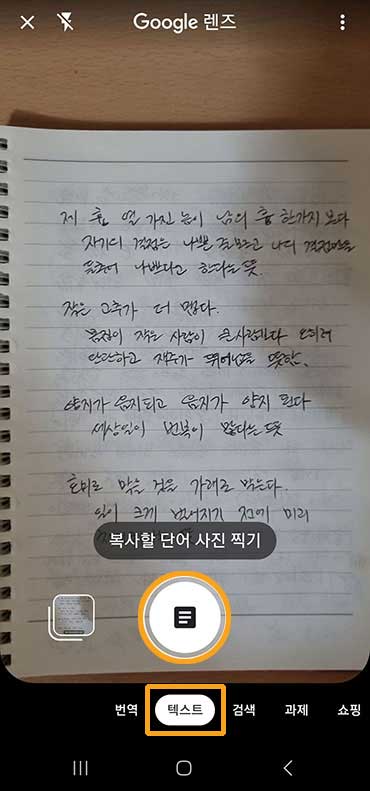 Google 렌즈
제 흉 열 가진 놈이 남의 흉 한가지 본다
자기의 결점은 나쁜 줄 모르고 남의 결점만을
들추어 나쁘다고 한다는 뜻.
작은 고추가 더 맵다.
몸집이 작은 사람이 큰 사람보다 오히려
단단하고 재주가 뛰어남을 뜻함.
양지가 음지되고 음지가 양지 된다
세상일이 번복이 많다는 뜻
호미로 막을 것을 가래로 막는다.
일이 크게 벌어지기 전에 미리
복사할 단어 사진 찍기
번역 텍스트 검색 과제 쇼핑